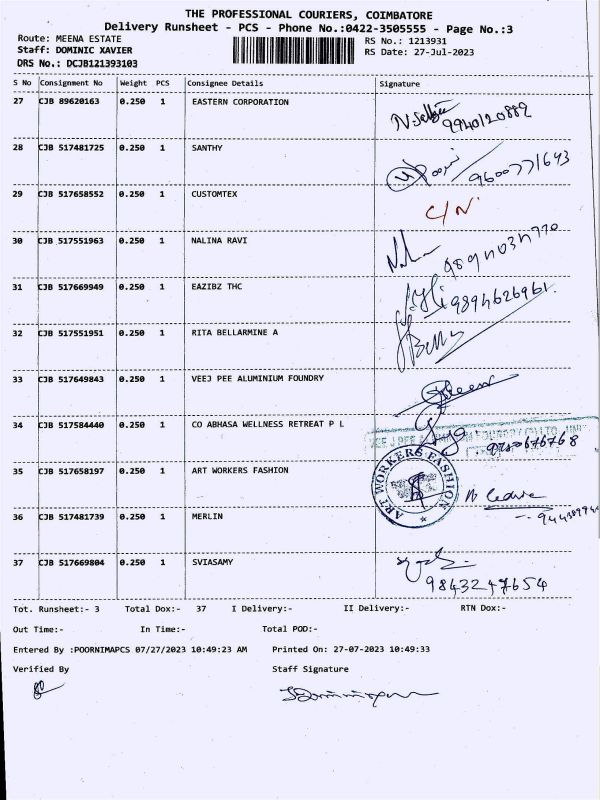 THE PROFESSIONAL COURIERS, COIMBATORE
Delivery Runsheet - PCS - Phone No.:0422-3505555 - Page No.:3
Route: MEENA ESTATE RS No.: 1213931
Staff: DOMINIC XAVIER RS Date: 27-Jul-2023
DRS No.: DCJB121393103
S No Consignment No Weight PCS Consignee Details Signature
27 CJB 89620163 0.250 1 EASTERN CORPORATION
9940120882
28 CJB 517481725 0.250 1 SANTHY
9600771643
29 CJB 517658552 0.250 1 CUSTOMTEX C/N
30 CJB 517551963 0.250 1 NALINA RAVI
31 CJB 517669949 0.250 1 EAZIBZ THC
9894626961
32 CJB 517551951 0.250 1 RITA BELLARMINE A
33 CJB 517649843 0.250 1 VEEJ PEE ALUMINIUM FOUNDRY
34 CJB 517584440 0.250 1 CO ABHASA WELLNESS RETREAT P L
35 CJB 517658197 0.250 1 ART WORKERS FASHION
ART WORKERS FASHION
36 CJB 517481739 0.250 1 MERLIN
37 CJB 517669804 0.250 1 SVIASAMY
9843247654
Tot. Runsheet:- 3 Total Dox:- 37 I Delivery:- II Delivery:- RTN Dox:-
Out Time:- In Time:- Total POD:-
Entered By :POORNIMAPCS 07/27/2023 10:49:23 AM Printed On: 27-07-2023 10:49:33
Verified By Staff Signature